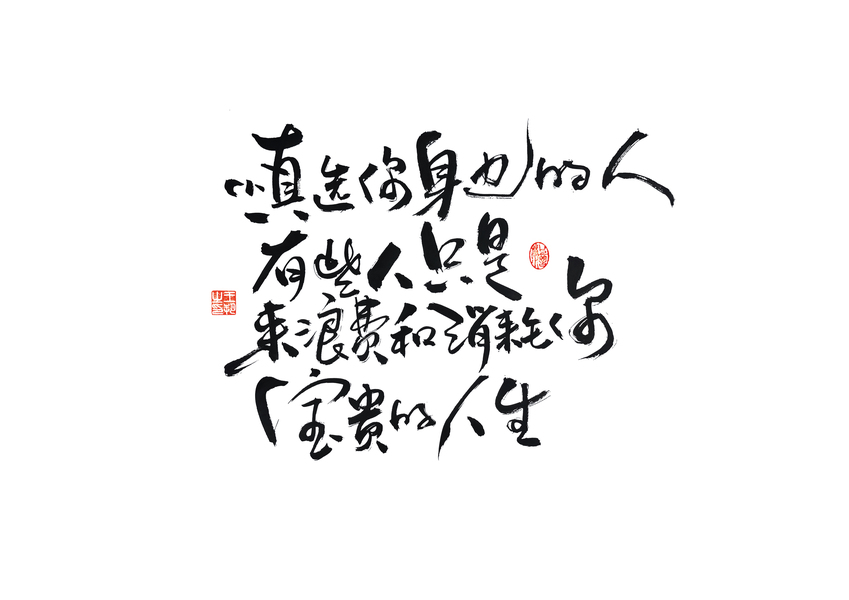 慎选你身边的人
有些人只是
来浪费和消耗你
宝贵的人生